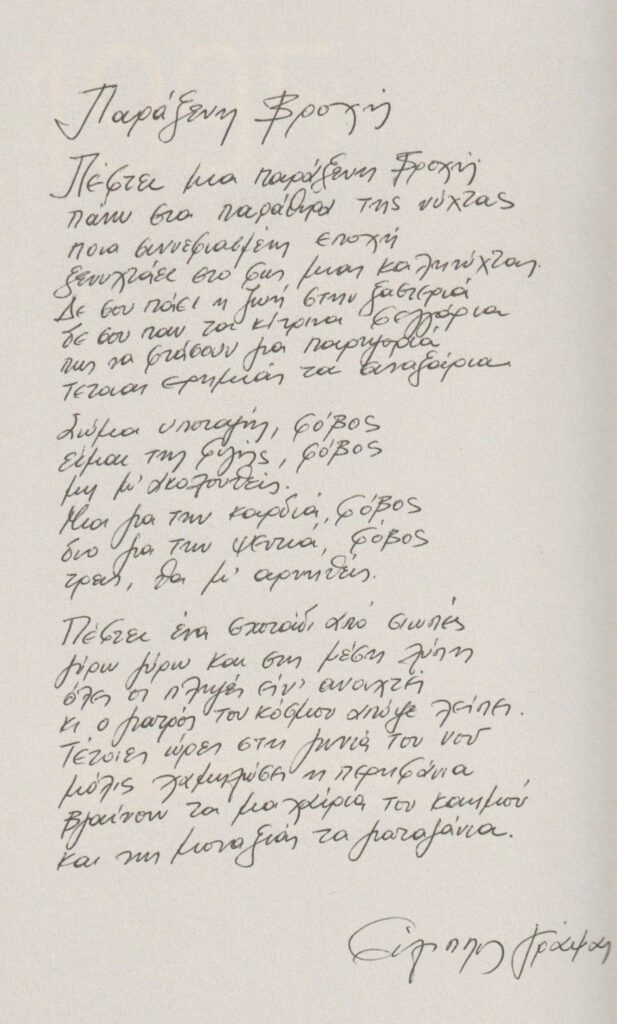 Παράξενη Βροχή
Πέφτει μια παράξενη βροχή
πάνω στα παράθυρα της νύχτας
ποια συννεφιασμένη εποχή
ξενυχτάει στο φως μιας καληνύχτας.
Δε σου πάει η ζωή στην ξαστεριά
δε σου παν τα κίτρινα φεγγάρια
πως να φτάσουν για παρηγοριά
τέτοιας ερημιάς τα
Σώμα υποταγή, φόβος
είμαι της φυγής, φόβος
μη μ' ακολουθείς.
Μια για την καρδιά, φόβος
δυο για την ψευτιά, φόβος
τρεις, θα μ' αρνηθείς.
Πέφτει ένα σκοτάδι από σιωπές
γύρω γύρω και στη μέση λύπη
όλες οι πληγές είν' ανοιχτές
κι ο γιατρός του κόσμου απόψε λείπει.
Τέτοιες ώρες στη γωνιά του νου
μόλις χαμηλώσει η περηφάνια
βγαίνουν τα μαχαίρια του καημού
και της μοναξιάς τα γιαταγάνια.
Φίλιππος Γράψας